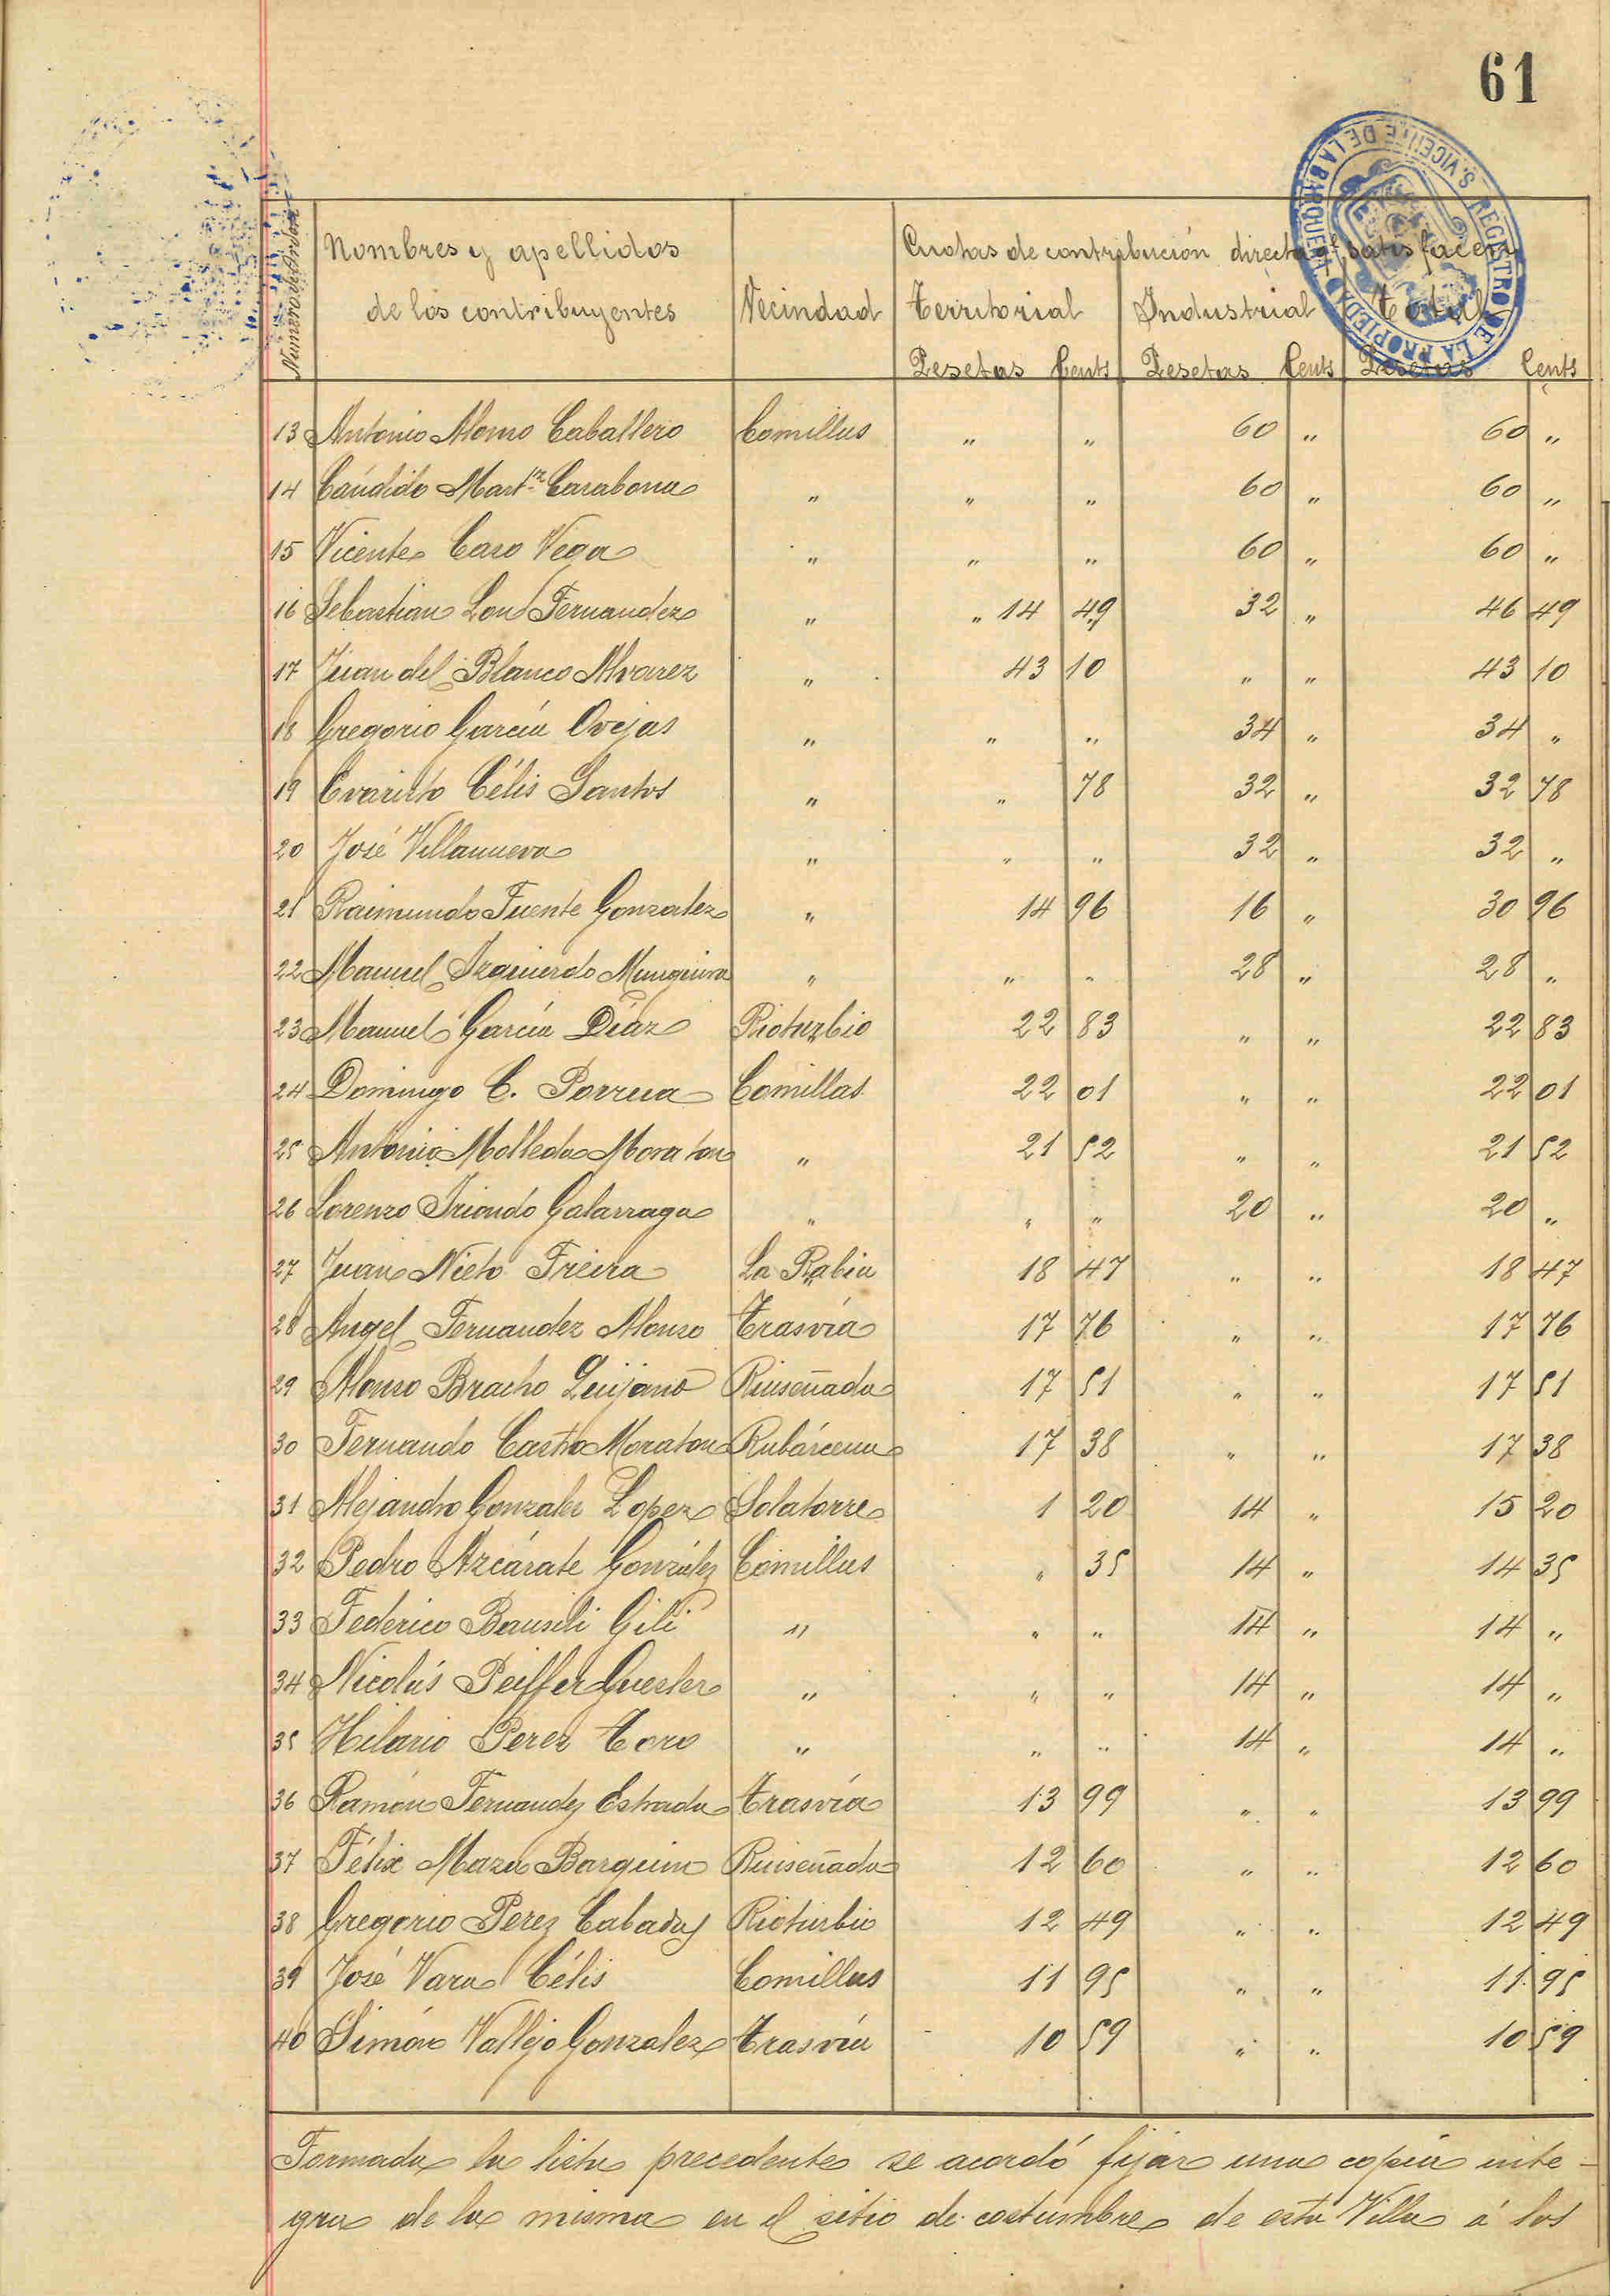 61
REGISTRO DE LA PROPIEDAD
S. VICENTE DE LA BARQUERA
Número de Orden
Nombres y apellidos
de los contribuyentes
Vecindad
Cuotas de contribución directa qe satisfacen
Territorial Industrial Total
Pesetas Cents Pesetas Cents Pesetas Cents
13 Antonio Alonso Caballero Comillas " " 60 " 60 "
14 Cándido Martnz Carabona " " " 60 " 60 "
15 Vicente Caso Vega " " " 60 " 60 "
16 Sebastian Lon Fernandez " " 14 49 32 " 46 49
17 Juan del Blanco Alvarez " 43 10 " " 43 10
18 Gregorio García Ovejas " " " 34 " 34 "
19 Evaristo Célis Santos " " 78 32 " 32 78
20 José Villanueva " " " 32 " 32 "
21 Raimundo Fuente Gonzalez " 14 96 16 " 30 96
22 Manuel Izquierdo Munguira " " " 28 " 28 "
23 Manuel García Díaz Rioturbio 22 83 " " 22 83
24 Domingo C. Porrua Comillas 22 01 " " 22 01
25 Antonio Molleda Moraton " 21 52 " " 21 52
26 Lorenzo Iriondo Galarraga " " " 20 " 20 "
27 Juan Nieto Freira La Rabia 18 47 " " 18 47
28 Angel Fernandez Alonso Trasvía 17 76 " " 17 76
29 Alonso Bracho Quijano Ruiseñada 17 51 " " 17 51
30 Fernando Castro Moraton Rubárcena 17 38 " " 17 38
31 Alejandro Gonzalez Lopez Solatorre 1 20 14 " 15 20
32 Pedro Azcárate González Comillas " 35 14 " 14 35
33 Federico Bausili Gili " " " 14 " 14 "
34 Nicolás Peiffer " " " 14 " 14 "
35 Hilario Perez Toro " " " 14 " 14 "
36 Ramón Fernandez Estrada Trasvía 13 99 " " 13 99
37 Félix Maza Barquin Ruiseñada 12 60 " " 12 60
38 Gregorio Perez Cabadas Rioturbio 12 49 " " 12 49
39 José Vara Célis Comillas 11 95 " " 11 95
40 Simón Vallejo Gonzalez Trasvía 10 59 " " 10 59
Formada la lista precedente se acordó fijar una copia inte-
gra de la misma en el sitio de costumbre de esta Villa á los